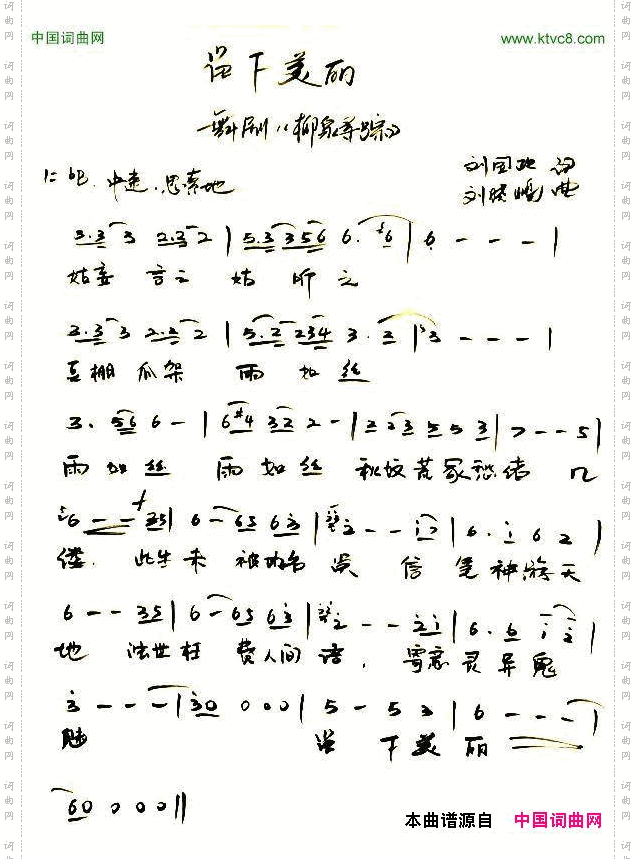 中国词曲网 www.ktvc8.com
留下美丽
舞剧《柳泉寻踪》
1=bE 中速、思索地
刘国 词
刘 曲
3.3 3 2.3 2 | 5.3 3 5 6 6. #6 | 6 - - - |
姑妄言之 姑听之
3.3 3 2.2 2 | 5.2 2 3 4 3. 2 | 3 - - - |
豆棚瓜架 雨如丝
3. 5 6 6 - | 6 #4 3 2 2 - | 2 2 3 5 5 3 | 7 - - 5 |
雨如丝 雨如丝 秋坟荒冢愁绪 几
6 - - 3 5 | 6 - 6 5 6 3 | 2 - - i 7 | 6. i 6 2 |
缕. 此生未被功名误 信笔神游天
6 - - 3 5 | 6 - 6 5 6 3 | 2 - - 2 i | 6. 6 i 2 |
地 浊世枉费人间语, 寄意灵异鬼
3 - - - | 3 0 0 0 0 | 5 - 5 3 | 6 - - - |
魅 留下美丽
6 0 0 0 0 ||
本曲谱源自 中国词曲网